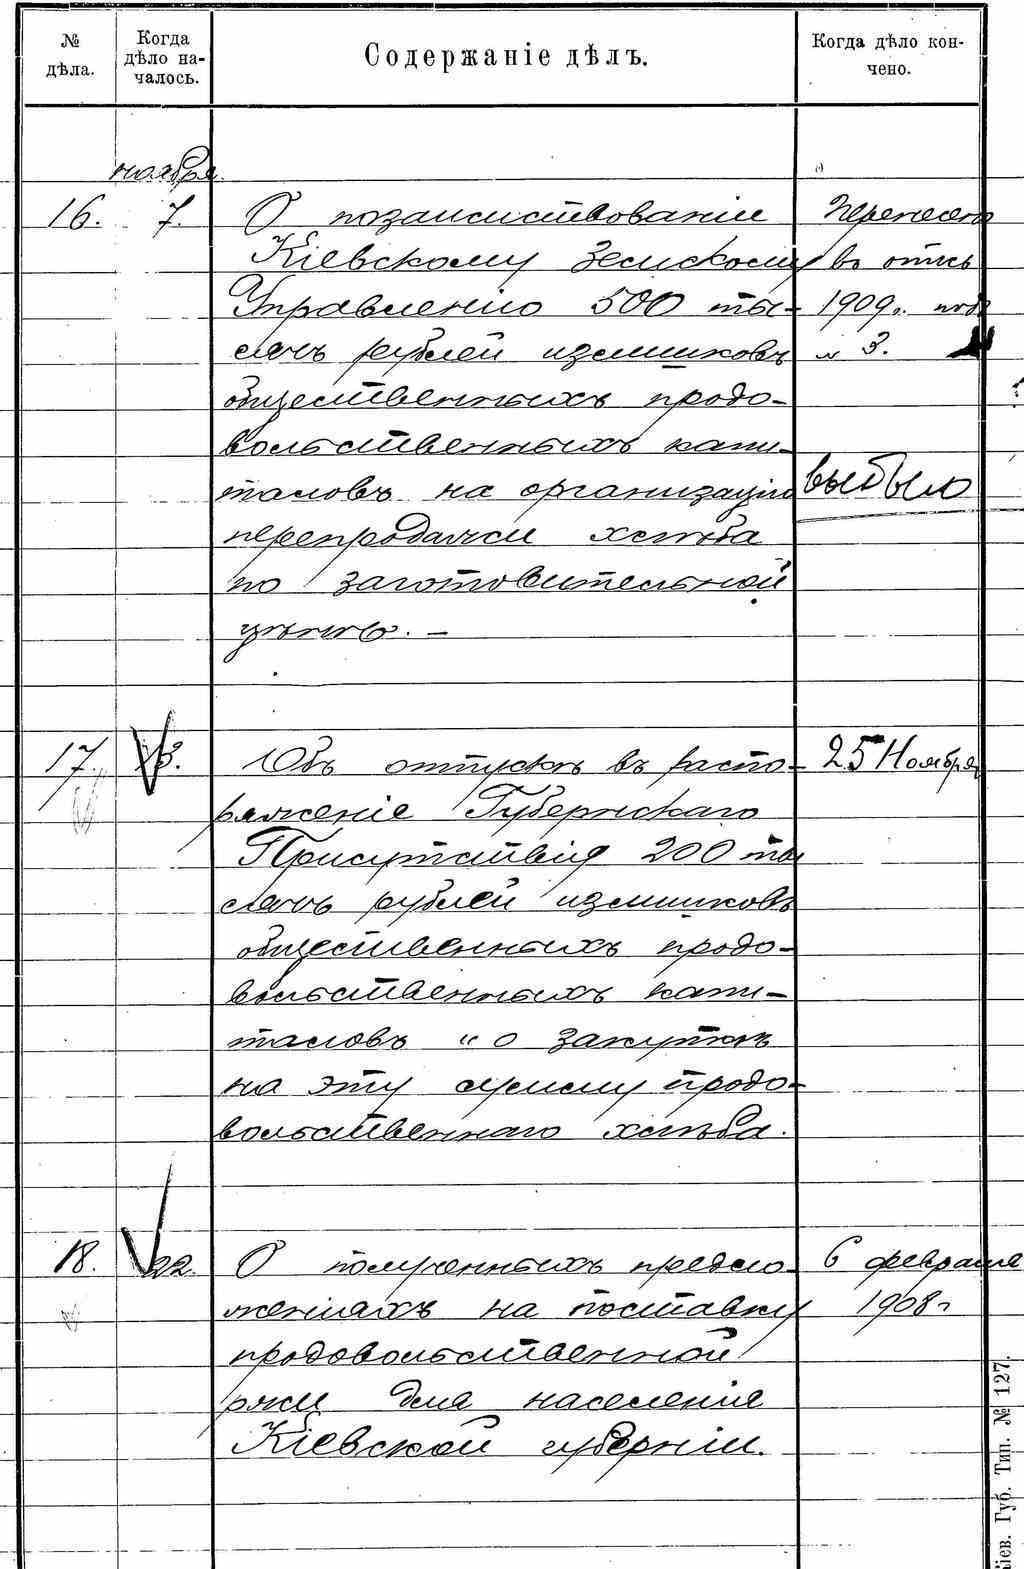 № дѣла.
Когда дѣло на-
чалось.
Содержаніе дѣлъ.
Когда дѣло кон-
чено.
ноября
16. 7. О позаимствованіи
Кіевскому Земскому
Управленію 500 ты-
сячъ рублей излишковъ
общественныхъ продо-
вольственныхъ капи-
таловъ на организацію
перепродажи хлѣба
по заготовительной
цѣнѣ. —
Перенесено
въ опись
1909г. подъ
№ 3.
выбыло
17. 13. Объ отпускѣ въ распо-
ряженіе Губернскаго
Присутствія 200 ты
сячъ рублей излишковъ
общественныхъ продо-
вольственныхъ капи-
таловъ "о закупкѣ
на эту сумму продо-
вольственнаго хлѣба.
25 Ноября
18. 22. О полученныхъ предло-
женіяхъ на поставку
продовольственной
ржи для населенія
Кіевской губерніи.
6 февраля
1908г
Кіев. Губ. Тип. № 127.